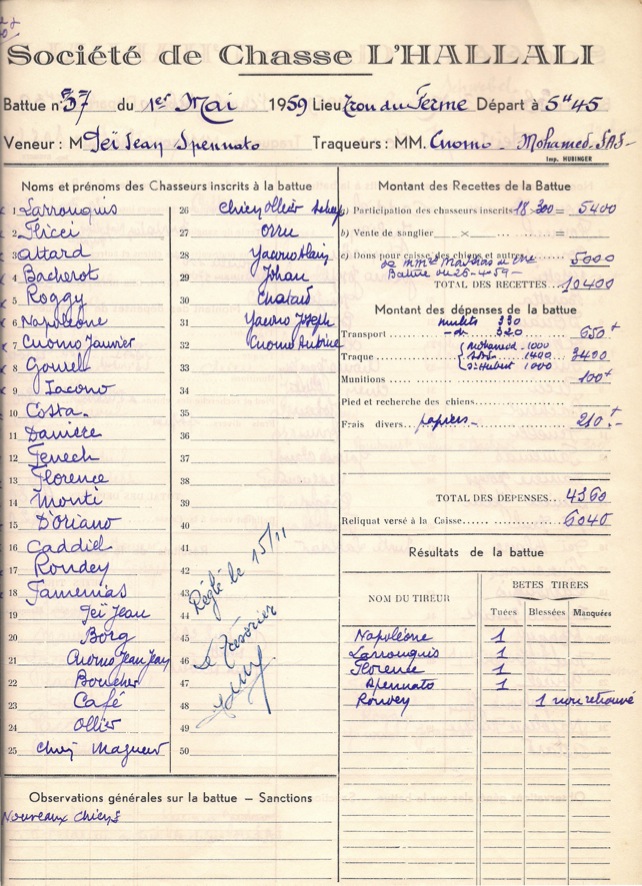 Société de Chasse L'HALLALI
Battue n° 37 du 1er Mai 1959 Lieu Trou du Ferme Départ à 5H45
Veneur : M Teï Jean Spennato Traqueurs : MM. Cuomo - Mohamed - SAS -
Imp. HUBINGER
Noms et prénoms des Chasseurs inscrits à la battue
1 Larrouquis
2 Flicci
3 attard
4 Bacherot
5 Roggy
6 Napoléone
7 Cuomo Janvier
8 Gourel
9 Iacono
10 Costa.
11 Danière
12 Fenech
13 Florence
14 Monti
15 D'Oriano
16 Caddiel
17 Rondey
18 Famenias
19 Teï Jean
20 Borg
21 Cuomo Jean Jean
22 Boucher
23 Café
24 Ollier
25 Chiey Magneur
26 Chiey Ollier
27 Orru
28 Yacono Alain
29 Johan
30 Chatard
31 Yacono Joseph
32 Cuomo Antoine
33
34
35
36
37
38
39
40
41
42
43
44
45
46
47
48
49
50
Réglé le 15/11
Le Trésorier
Montant des Recettes de la Battue
a) Participation des chasseurs inscrits 18 x 300 = 5400
b) Vente de sanglier x =
c) Dons pour caisse des chiens et autres 5000
Battue du 26-4-59-
TOTAL DES RECETTES 10400
Montant des dépenses de la battue
mulets 330
-do- 320
Transport 650+
Traque { Mohamed 1000
SAS 1400 3400
St Hubert 1000
Munitions 100+
Pied et recherche des chiens
Frais divers papiers - 210.-
TOTAL DES DEPENSES 4360
Reliquat versé à la Caisse 6040
Résultats de la battue
NOM DU TIREUR BETES TIREES
Tuées Blessées Manquées
Napoléone 1
Larrouquis 1
Florence 1
Spennato 1
Rondey 1 non retrouvé
Observations générales sur la battue – Sanctions
Nouveaux chieys